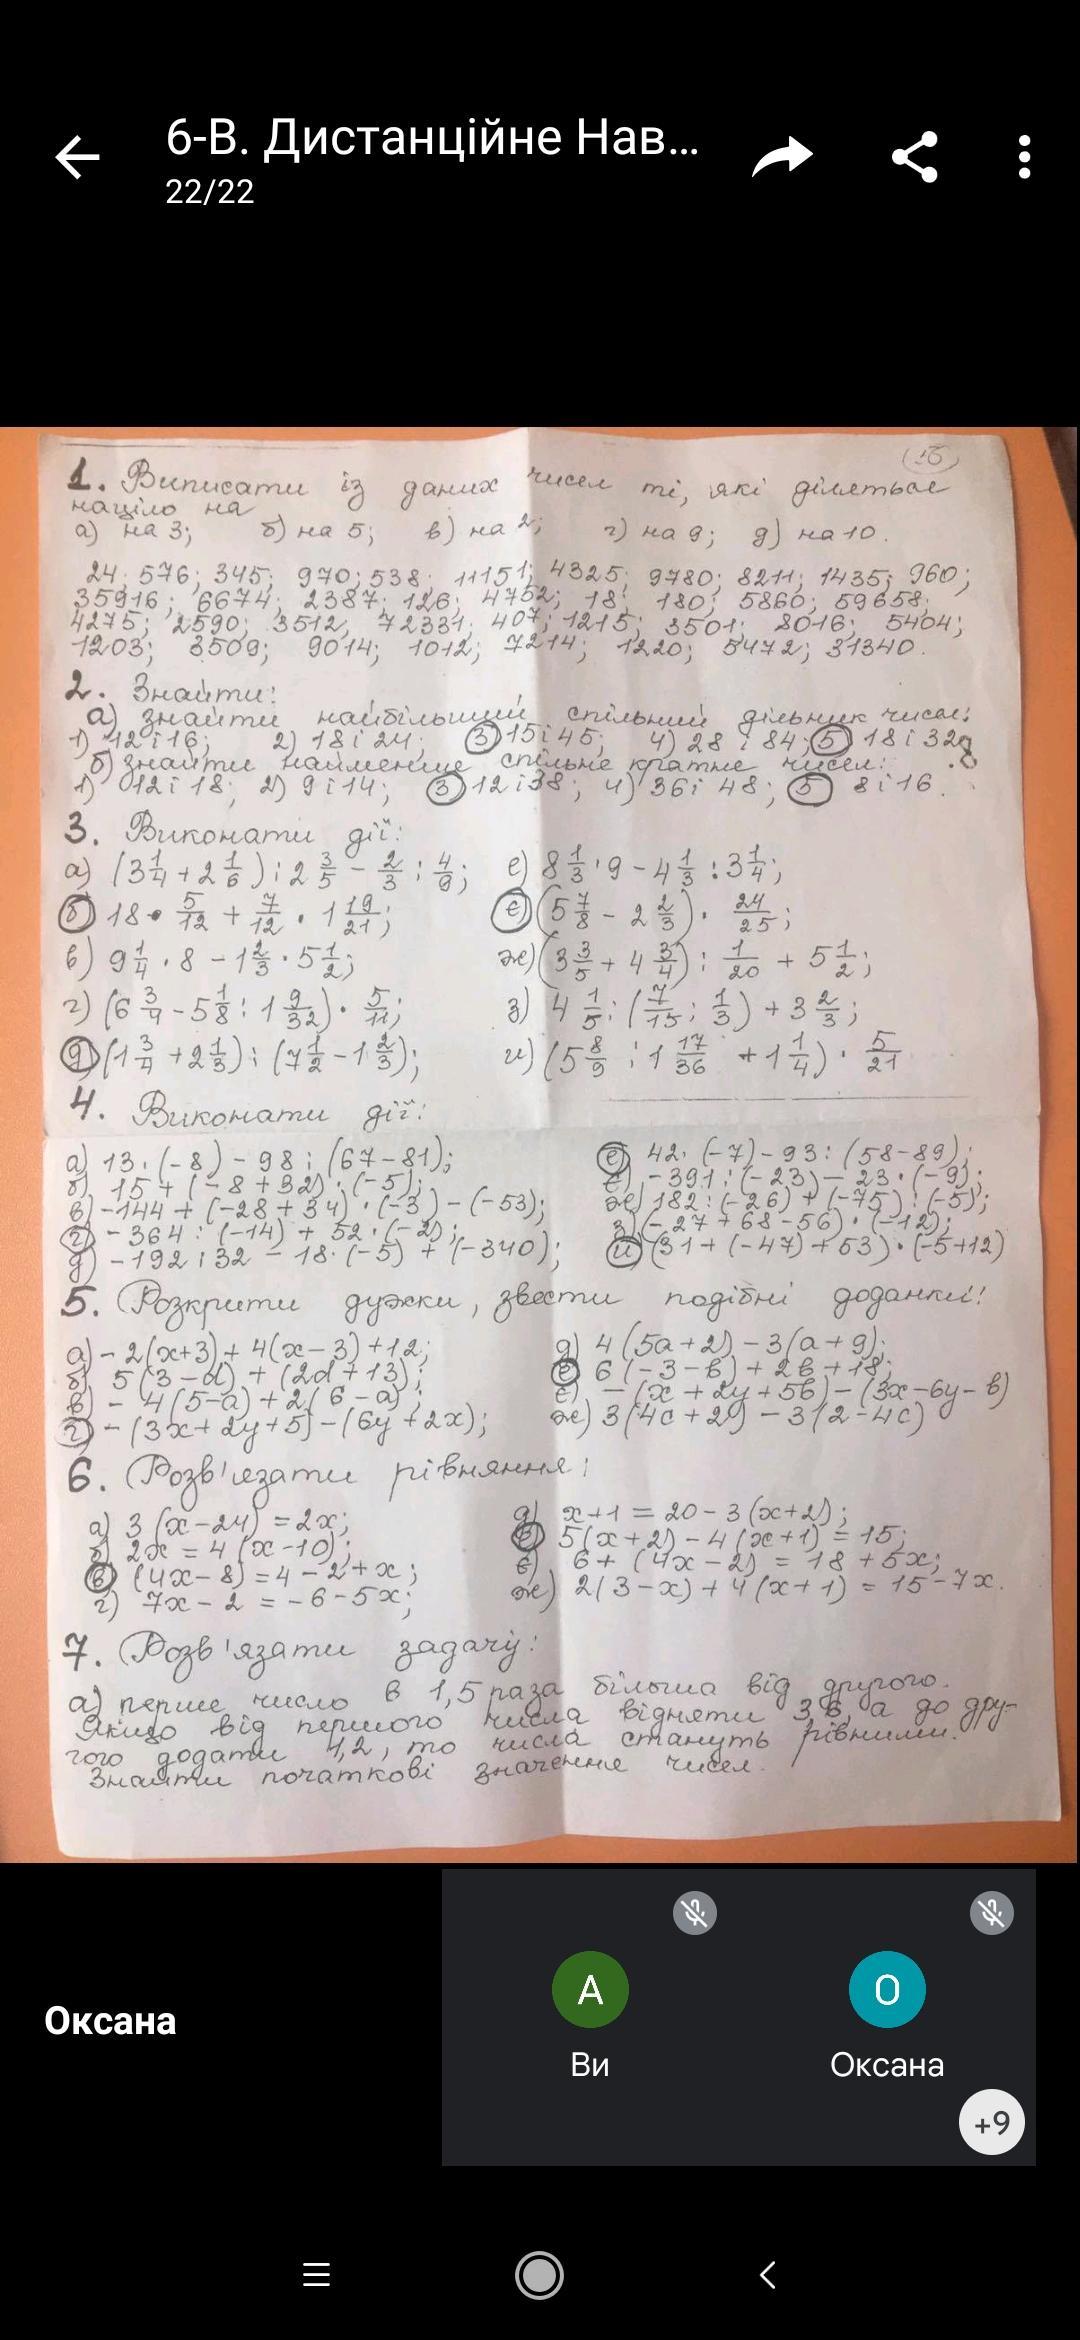 6-В. Дистанційне Нав...
22/22
1б
1. Виписати із даних чисел ті, які діляться
націло на
а) на 3; б) на 5; в) на 2; г) на 9; д) на 10.
24; 576; 345; 970; 538; 11151; 4325; 9780; 8211; 1435; 960;
35916; 6674; 2387; 126; 4752; 18; 180; 5860; 59658;
4275; 2590; 3512; 72331; 407; 1215; 3501; 8016; 5404;
1203; 3509; 9014; 1012; 7214; 1220; 5472; 31340.
2. Знайти:
а) знайти найбільший спільний дільник чисел:
1) 12 і 16; 2) 18 і 24; 3) 15 і 45; 4) 28 і 84; 5) 18 і 32
б) знайти найменше спільне кратне чисел:
1) 12 і 18; 2) 9 і 14; 3) 12 і 38; 4) 36 і 48; 5) 8 і 16.
3. Виконати дії:
а) (3 1/4 + 2 1/6) : 2 3/5 - 2/3 : 4/9; е) 8 1/3 · 9 - 4 1/3 : 3 1/4;
б) 18 · 5/12 + 7/12 · 1 19/21; є) (5 7/8 - 2 2/3) · 24/25;
в) 9 1/4 · 8 - 1 2/3 · 5 1/2; ж) (3 3/5 + 4 3/4) : 1/20 + 5 1/2;
г) (6 3/4 - 5 1/8 : 1 9/32) · 5/11; з) 4 1/5 : (7/15 : 1/3) + 3 2/3;
д) (1 3/4 + 2 1/3) : (7 1/2 - 1 2/3); и) (5 8/9 : 1 17/36 + 1 1/4) · 5/21
4. Виконати дії:
а) 13 · (-8) - 98 : (67-81); е) 42 · (-7) - 93 : (58-89);
б) 15 + (-8 + 32) · (-5); є) -391 : (-23) - 23 · (-9);
в) -144 + (-28 + 34) · (-3) - (-53); ж) 182 : (-26) + (-75) : (-5);
г) -364 : (-14) + 52 · (-2); з) (-27 + 68 - 56) · (-12);
д) -192 : 32 - 18 · (-5) + (-340); и) (31 + (-47) + 53) · (-5+12)
5. Розкрити дужки, звести подібні доданки:
а) -2(x+3) + 4(x-3) + 12; д) 4(5a+2) - 3(a+9);
б) 5(3-d) + (2d+13); е) 6(-3-в) + 2в + 18;
в) -4(5-a) + 2(6-a); є) -(x + 2y + 5в) - (3x-6y-в)
г) -(3x+2y+5) - (6y+2x); ж) 3(4c+2) - 3(2-4c)
6. Розв'язати рівняння:
а) 3(x-24) = 2x; д) x+1 = 20 - 3(x+2);
б) 2x = 4(x-10); е) 5(x+2) - 4(x+1) = 15;
в) (4x-8) = 4 - 2 + x; є) 6 + (4x-2) = 18 + 5x;
г) 7x - 2 = -6 - 5x; ж) 2(3-x) + 4(x+1) = 15 - 7x.
7. Розв'язати задачу:
а) перше число в 1,5 раза більша від другого.
Якщо від першого числа відняти 3,6, а до дру-
гого додати 1,2, то числа стануть рівними.
Знайти початкові значення чисел.
Оксана
А
О
Ви
Оксана
+9